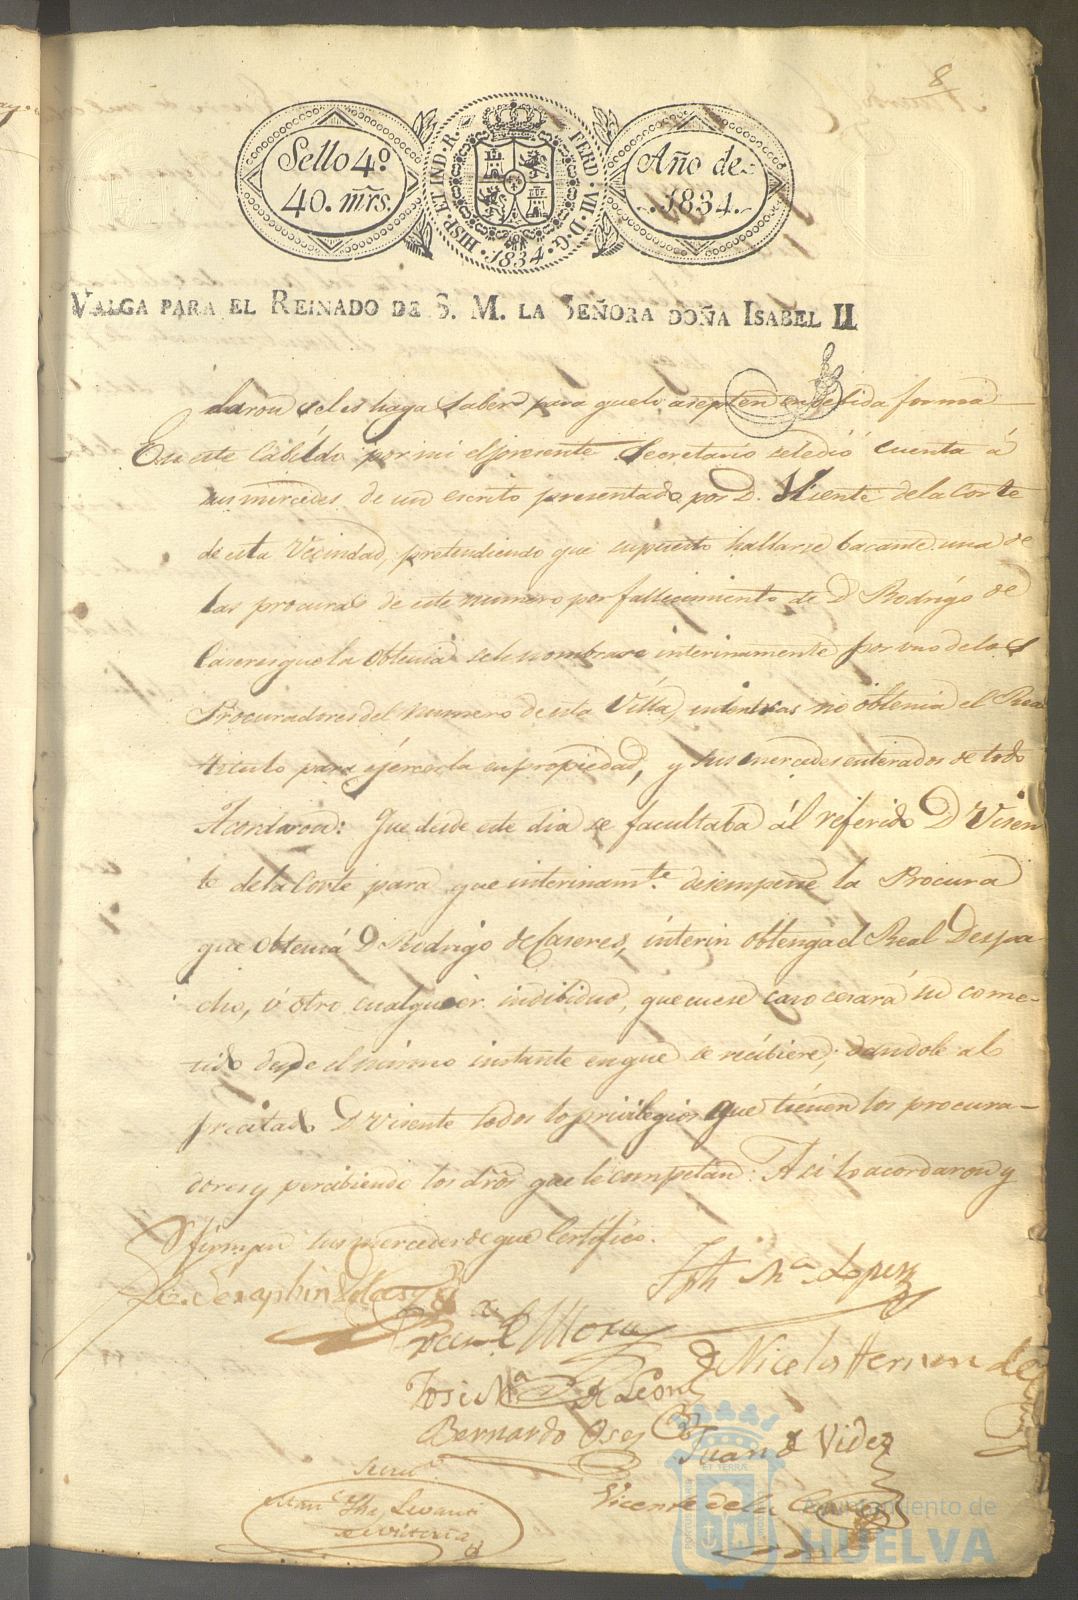 8
Sello 4º
40. mrs.
HISP. ET IND. R.
FERD. VII. D. G.
1834
Año de
1834.
VALGA PARA EL REINADO DE S. M. LA SEÑORA DOÑA ISABEL II
daron seles haga saber para quelo asepten endebida forma
En este Cabildo por mi elpresente Secretario seledió cuenta á
sus mercedes de un escrito presentado por D. Visente dela Corte
de esta Vecindad, pretendiendo que supuesto hallarse bacante una de
las procuras de este numero por fallecimiento de D Rodrigo de
Caseres quela obtenia sele nombrase interinamente por uno delos
Procuradores del numero de esta Villa, mientras no obtenia el Real
titulo para ejercerla en propiedad, y sus mercedes enterados de todo
Acordaron: Que desde este dia se facultaba ál referido D Visen
te dela Corte para que interinamte. desempeñe la Procura
que obtenia D Rodrigo de Caseres, interin obtenga el Real Despa-
cho, ú otro cualquier indibiduo, que en ese caso cesará su come-
tido desde el mismo instante en que se recibiere; dandole al
precitado D Visente todos los privilegios que tienen los procura-
dores y percibiendo los dros que le competan: Asi lo acordaron y
firman sus mercedes de que Certifico.
Seraphin
Jph Ma. Lopez
Franco. de Mora
Nicolas Hernandez
José Ma. de Leon
Bernardo Oses
Juan de Videz
Vicente dela Corte
Ayuntamiento de
HUELVA